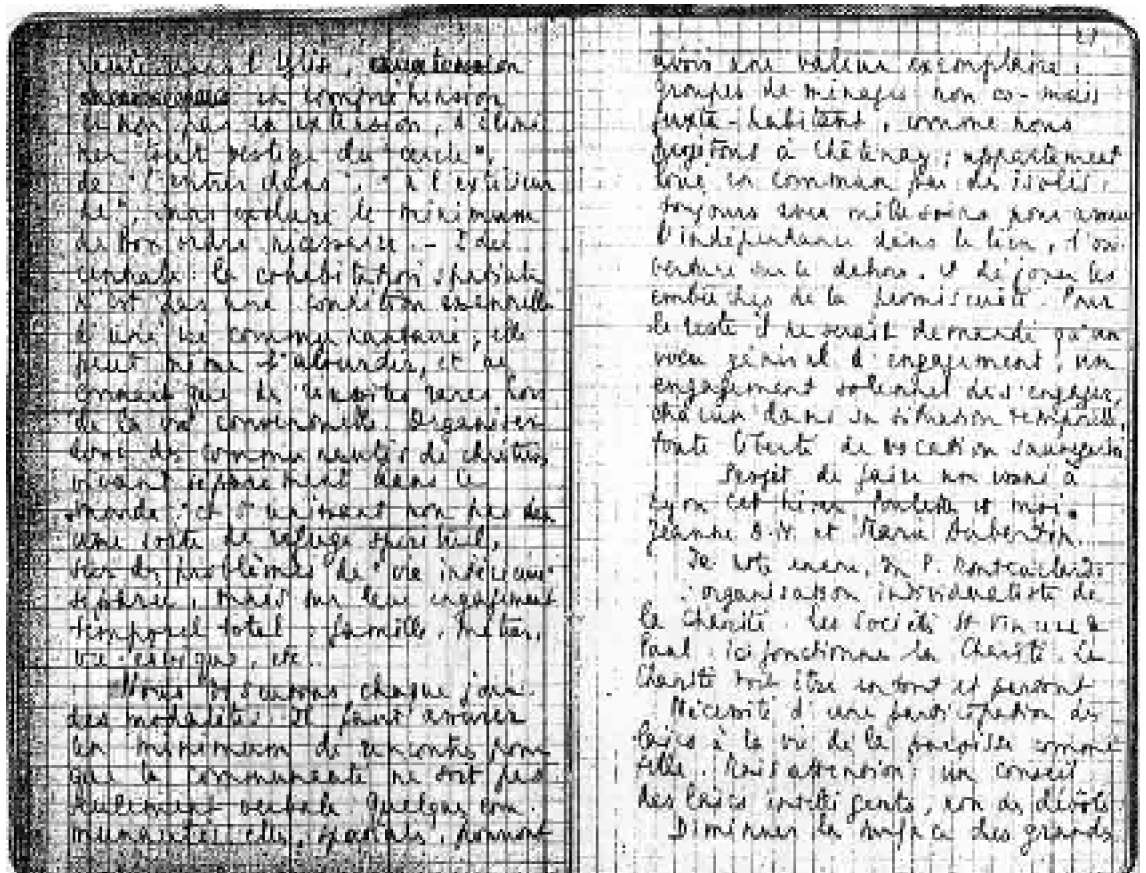 dans l'Eglise,
en compréhension
et non pas en extension, d'élimi
ner tout vestige du "cercle",
de "l'entrer dans", "à l'extérieur
de", sans exclure le minimum
de bon ordre nécessaire. - Idée
centrale: la cohabitation spatiale
n'est pas une condition essentielle
d'une vie communautaire, elle
peut même l'alourdir, et ne
connaît que de réussites rares hors
de la vie conventuelle. Organiser
donc des communautés de chrétiens
vivant séparément dans le
monde et s'unissant non pas dans
une sorte de refuge spirituel,
sur des problèmes de vie intérieure
séparée, mais sur leur engagement
temporel total: famille, métier,
vie civique, etc.
Nous discutons chaque jour
des modalités. Il faut assurer
un minimum de rencontres pour
que la communauté ne soit pas
seulement verbale. Quelques com-
munautés, elles, spatiales, pourront
27
avoir une valeur exemplaire:
groupes de ménages non co- mais
juxta-habitant, comme nous
projetons à Châtenay; appartement
loué en commun par des isolés.
Toujours avec mille soins pour assurer
l'indépendance dans le lien, l'ou-
verture sur le dehors, et déjouer les
embûches de la promiscuité. Pour
le reste il ne serait demandé qu'un
vœu général d'engagement, un
engagement solennel de s'engager,
chacun dans sa situation temporelle,
toute liberté de vocation sauvegardée.
Projet de faire non vains à
Lyon cet hiver Paulette et moi.
Jeanne et Marie Aubertin.
Je note encore, du P.
organisation individualiste de
la Charité. Les Sociétés St Vincent de
Paul. Ici fonctionne la Charité. La
Charité doit être en tout et partout
Nécessité d'une participation des
laïcs à la vie de la paroisse comme
telle. Mais attention: un conseil
des laïcs intelligents, non des dévôts
Diminuer la surface des grands